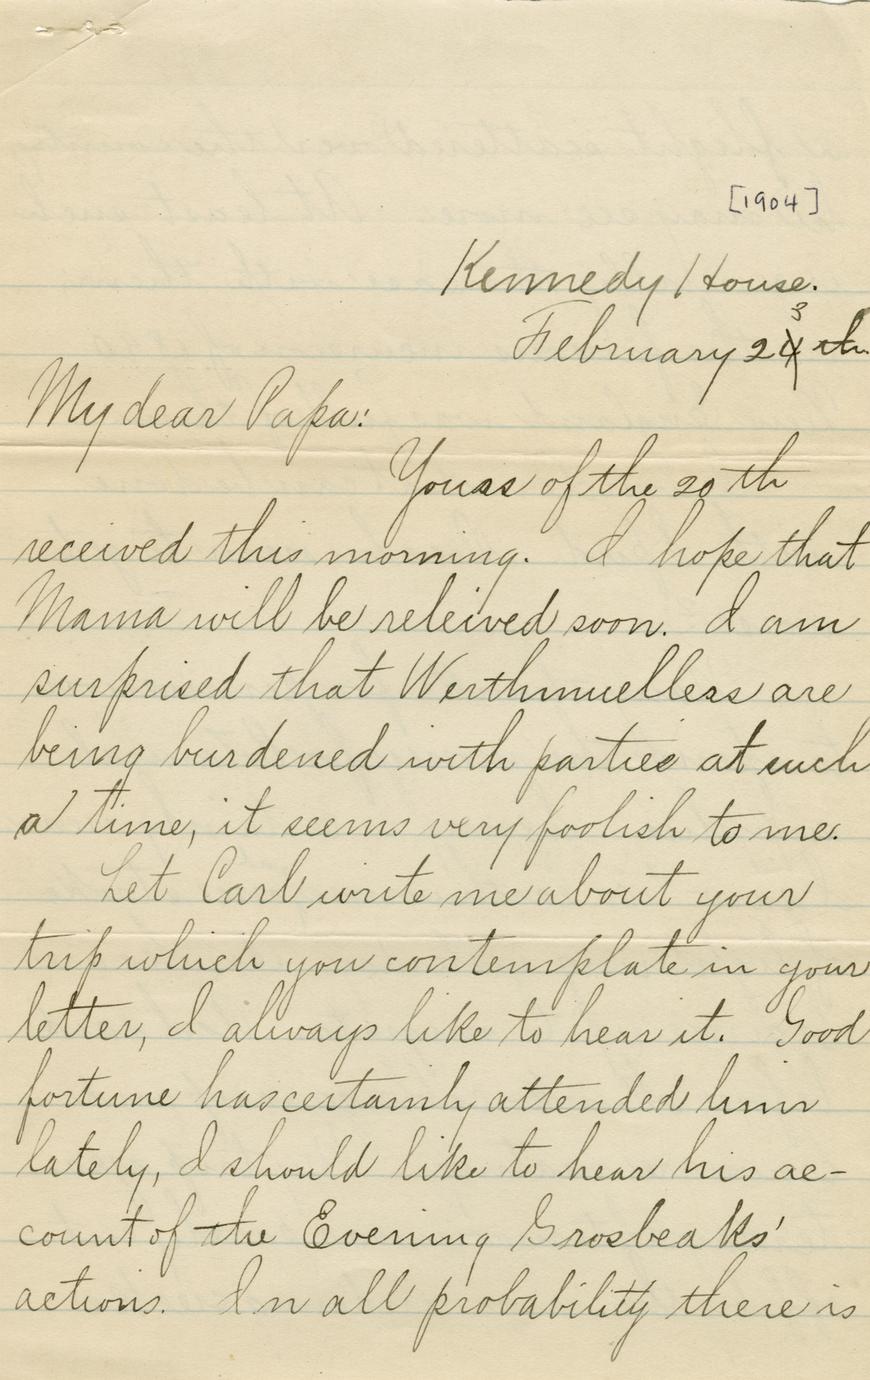 [1904]
Kennedy House.
February 23th
My dear Papa:
Yours of the 20th
received this morning. I hope that
Mama will be releived soon. I am
surprised that Werthmuellers are
being burdened with parties at such
a time, it seems very foolish to me.
Let Carl write me about your
trip which you contemplate in your
letter, I always like to hear it. Good
fortune has certainly attended him
lately, I should like to hear his ac-
count of the Evening Grosbeaks'
actions. In all probability there is